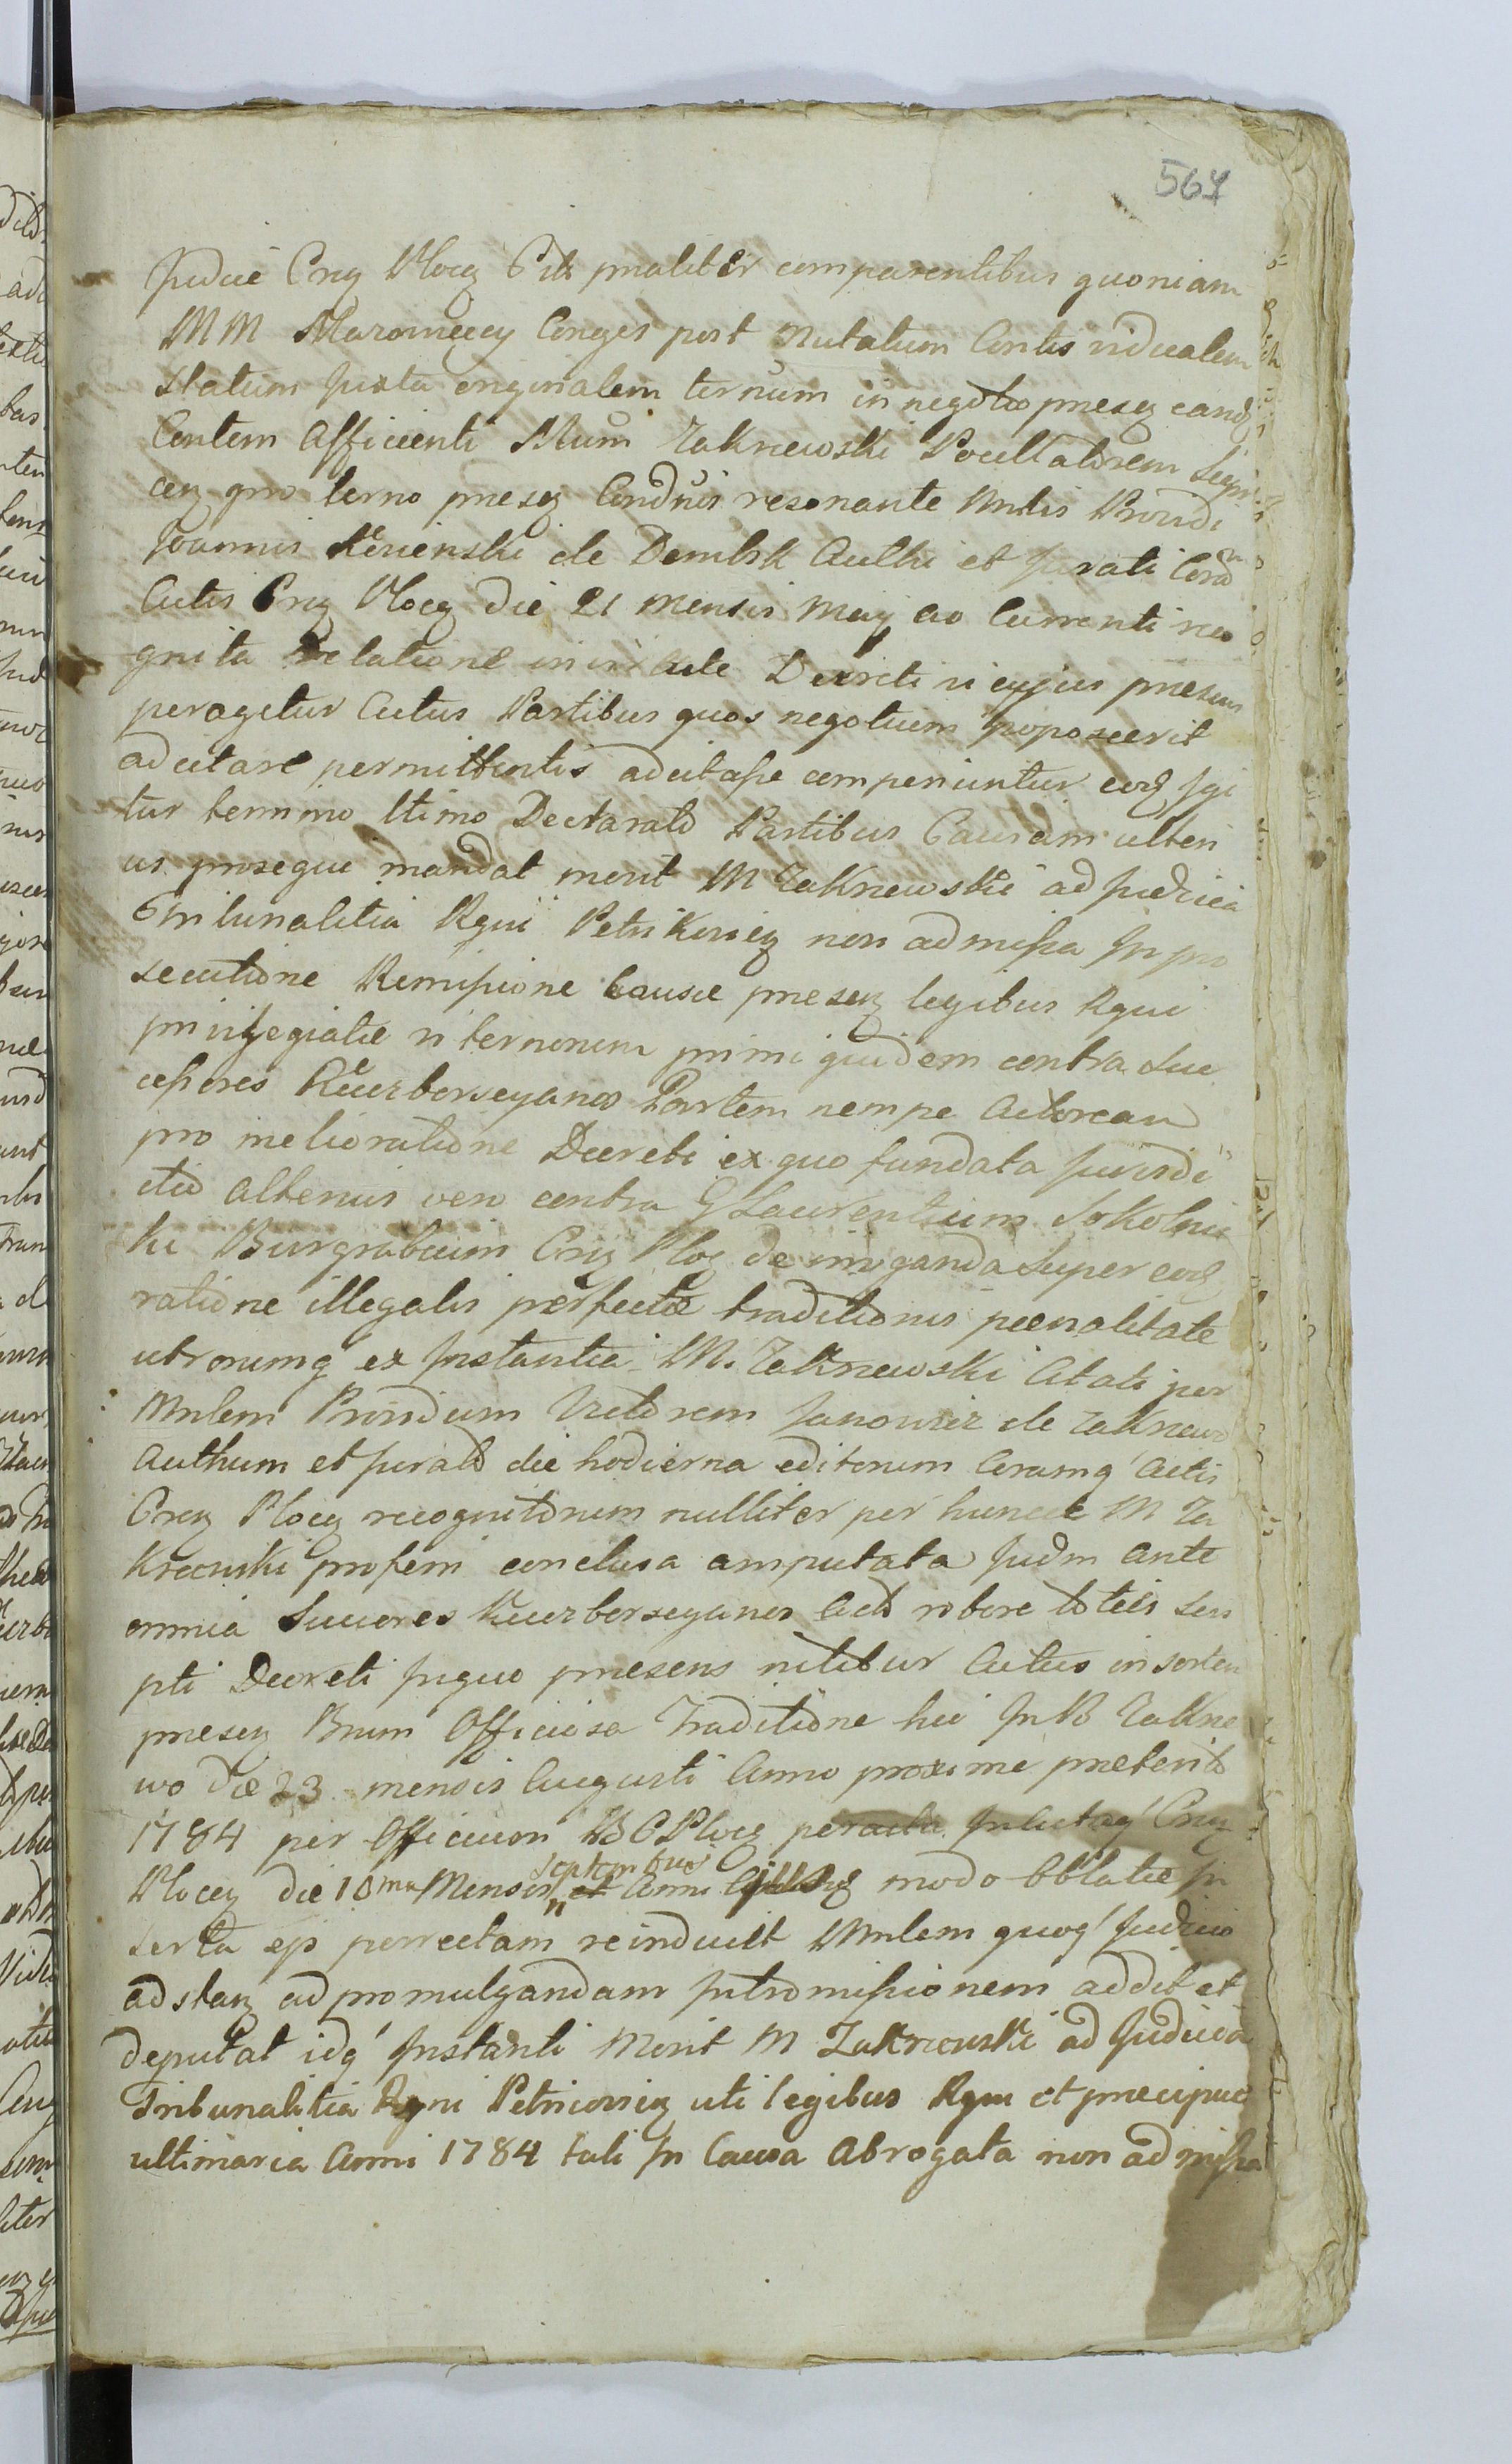 567
Judicÿ Crŋ Plocŋ Ptibs pnaliter comparentibus quoniam
MM Maromęccy Conges post mutatum Contis vidualem
statum Juxta originalem ternum in negotio presŋ eand
Centem Afficienti Mum Zakrzewski Pocillatorem
ceŋ pro terno presŋ Condnis resonante Mnlis Providi
Joannis de Dembsk Authi et Jurati Coram
Actis Crŋ Plocŋ die 21 mensis Maij ao Currenti reco
gnita relatione in vim Acle Decreti vi cujus presens
peragetur Actus Partibus quos negotium poposcerit
adcitare permittentis adcitasse comperiuntur eod Igi
tur termino ltimo Declarato Partibus Causam ulteri
us prosequi mandat movit M Zakrzewski ad Judicia
Tribunalitia Rgni Petrikovieŋ non admissa In pro
secutione Remissione Causæ presŋ legibus Rgni
privilegiatæ vi ternorum primi quidem contra Suc
cessores Kucrborscyanos Partem nempe Actoream
pro melioratione Decreti ex quo fundata Jurisdi
ctio alterius vero contra G Laurentium Sokolnic
ki Burgrabium Crŋ Ploc de irroganda super eod
ratione illegalis perfectæ traditionis poenalitate
utrorumq ex Instantia M. Zakrzewski Citati per
Mnlem Providum Victorem Janowicz de Zakrzewo
Authum et Jurato die hodierna editorum Coramq Actis
Crŋ Plocŋ recognitorum nulliter per huncce M Za
krzewski proferri conclusa amputata Judm ante
omnia Succores Kucrborscyanos Acto robore toties scri
pti Decreti In quo presens nititur Actus in sortem
presŋ Bnum Officiosa Traditione hic In B Zakrze
wo die 23 mensis Augusti Anno proxime preterito
1784 per Officium BC Plocŋ peracta In Actaq Crŋ
Plocŋ die 10ma Mensis septembris Anni modo Oblatæ In
serta ejs perrectam reinducit Mnlem quoq Judicio
adstanŋ ad promulgandam Intromissionem addit et
deputat idq Instanti Movit M Zakrzewski ad Judicia
Tribunalitia Rgni Petricovieŋ uti legibus Rgni et præcipue
ultimaria Anni 1784 tali In Causa Abrogata non admissa